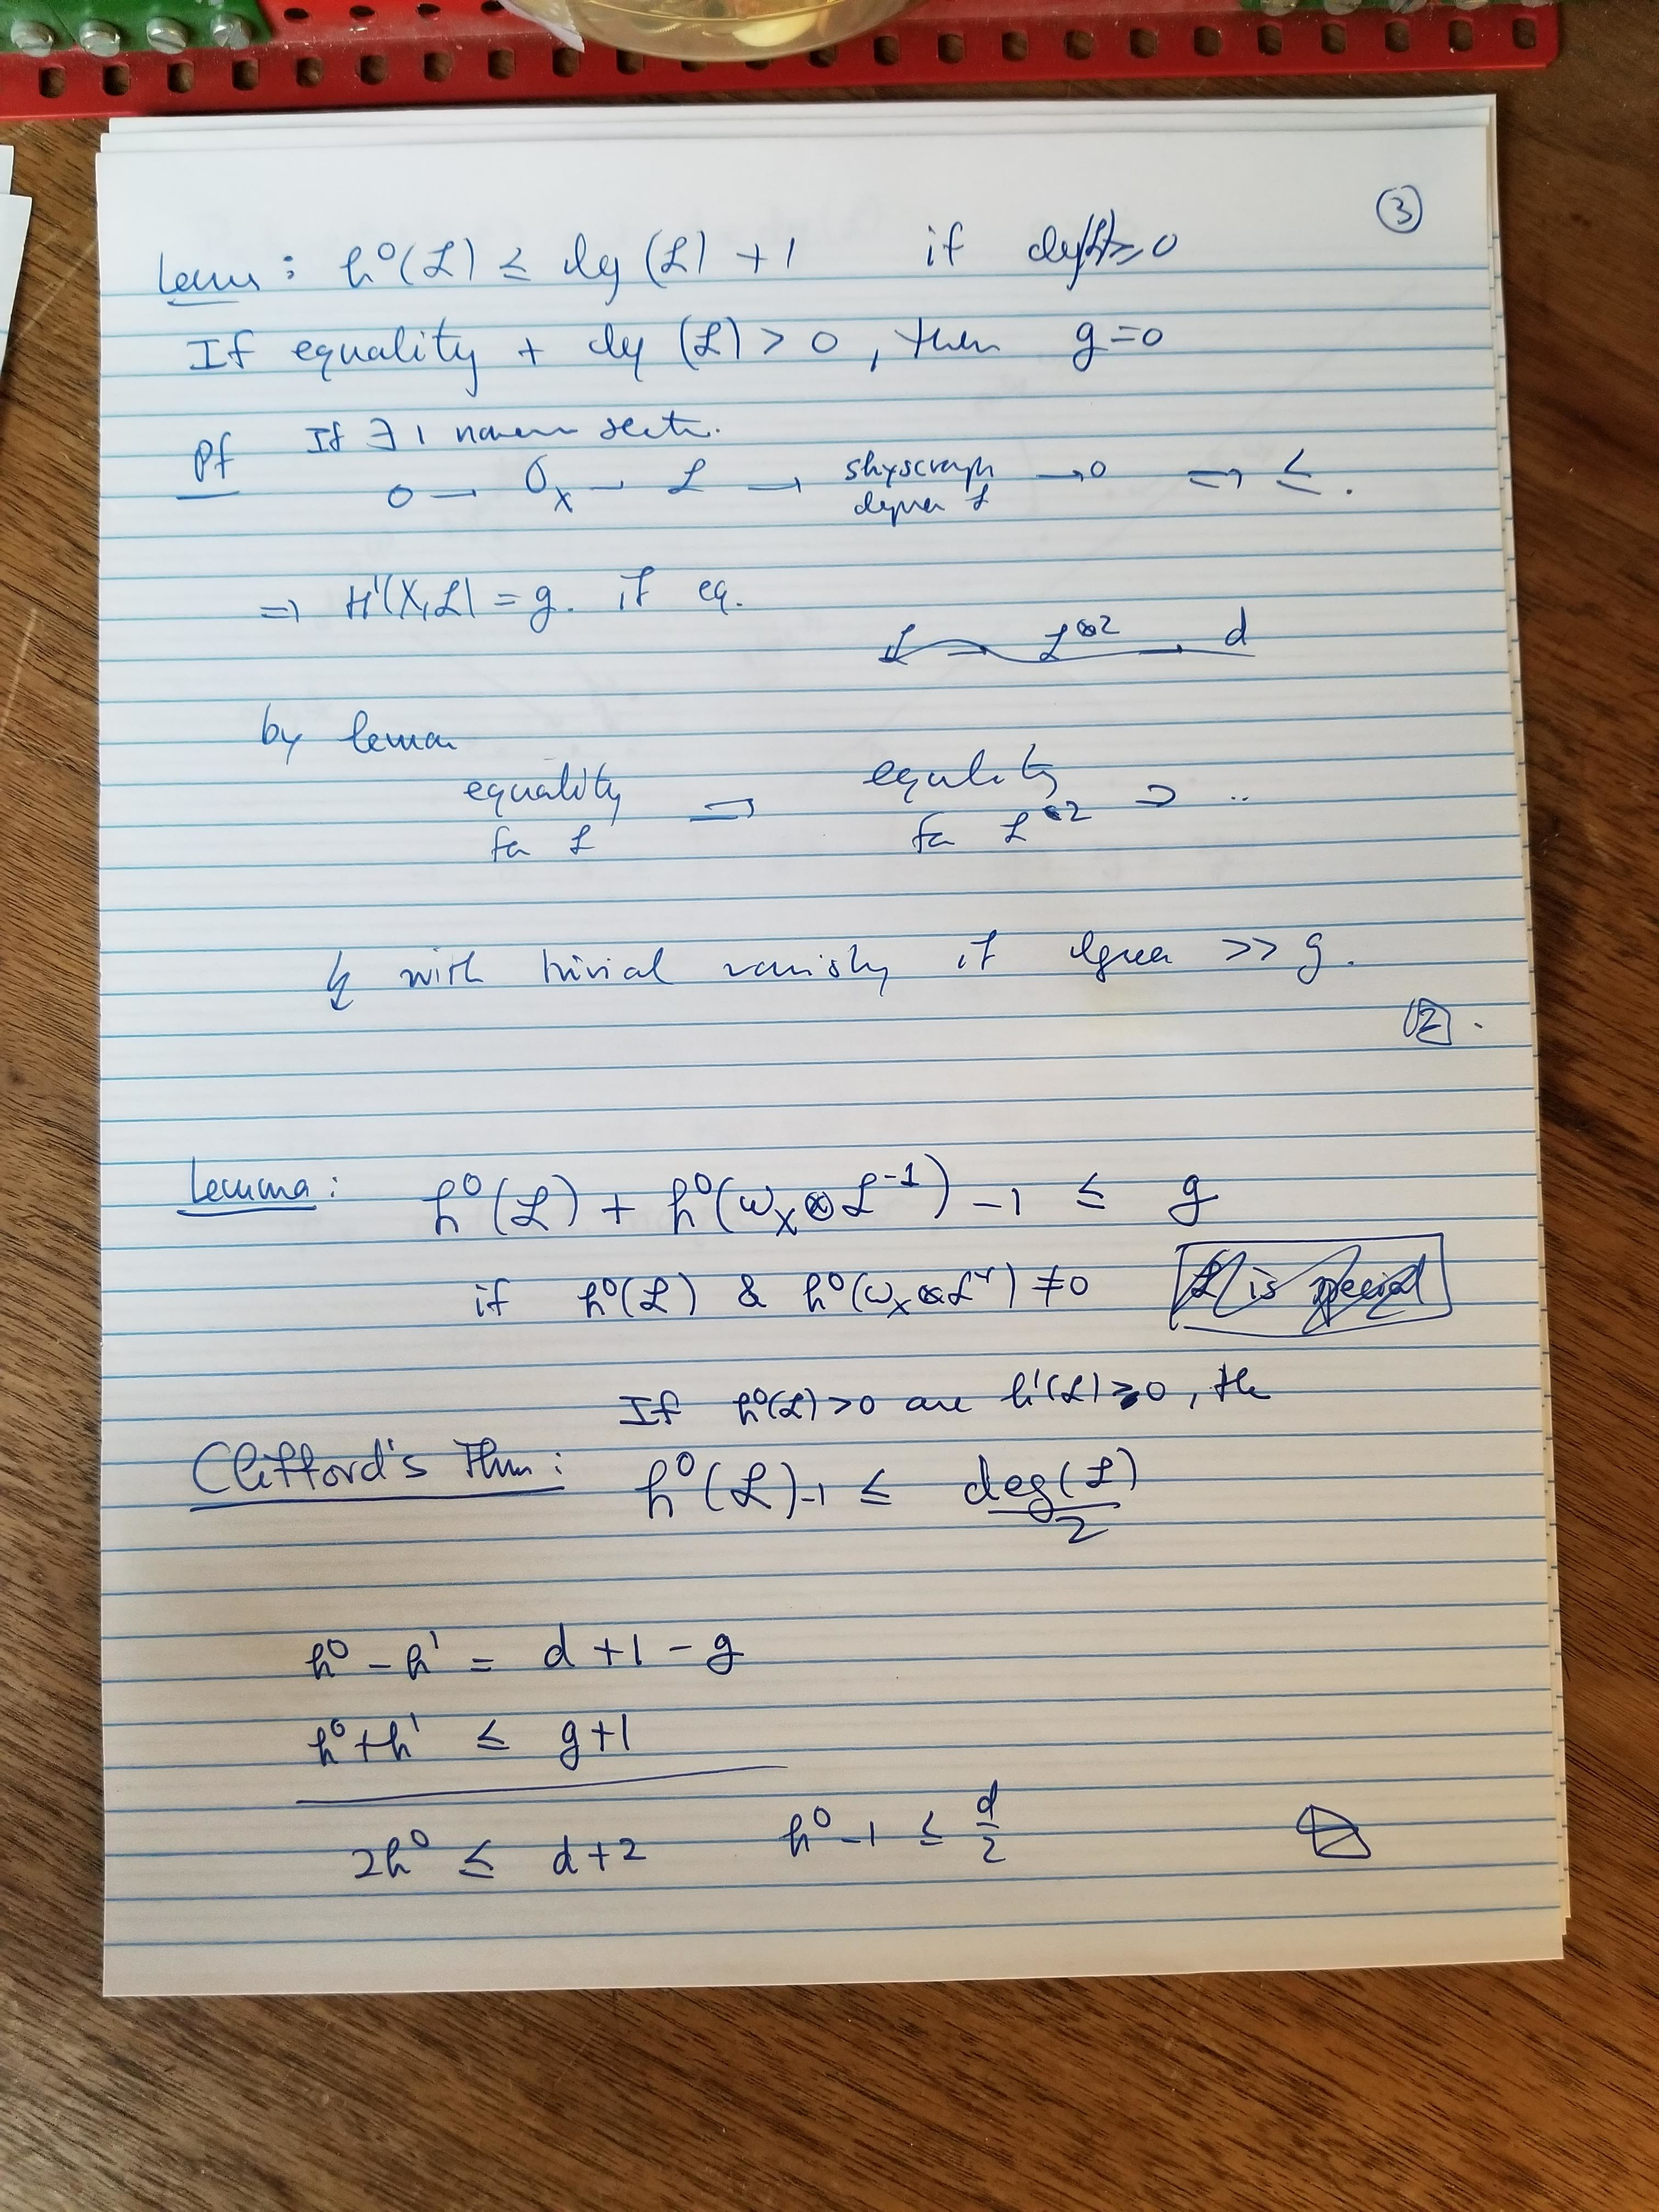 ③
Lemma : h⁰(ℒ) ≤ deg (ℒ) + 1 if deg(ℒ) ≥ 0
If equality + deg (ℒ) > 0 , then g=0
Pf If ∃ 1 nonzero section.
0 → 𝒪_X → ℒ → skyscraper degree ℒ → 0 ⇒ ≤ .
⇒ H¹(X,ℒ) = g. if eq.
ℒ^{⊗2} d
by lemma
equality for ℒ ⇒ equality for ℒ^{⊗2} ⇒ ..
↯ with trivial vanishing if degree >> g.
Lemma : h⁰(ℒ) + h⁰(ω_X⊗ℒ^{-1}) -1 ≤ g
if h⁰(ℒ) & h⁰(ω_X⊗ℒ^{-1}) ≠0 ℒ is special
If h⁰(ℒ)>0 h¹(ℒ) 0 , the
Clifford's Thm : h⁰(ℒ)-1 ≤ deg(ℒ)/2
h⁰ - h¹ = d + 1 - g
h⁰ + h¹ ≤ g+1
2h⁰ ≤ d+2 h⁰-1 ≤ d/2